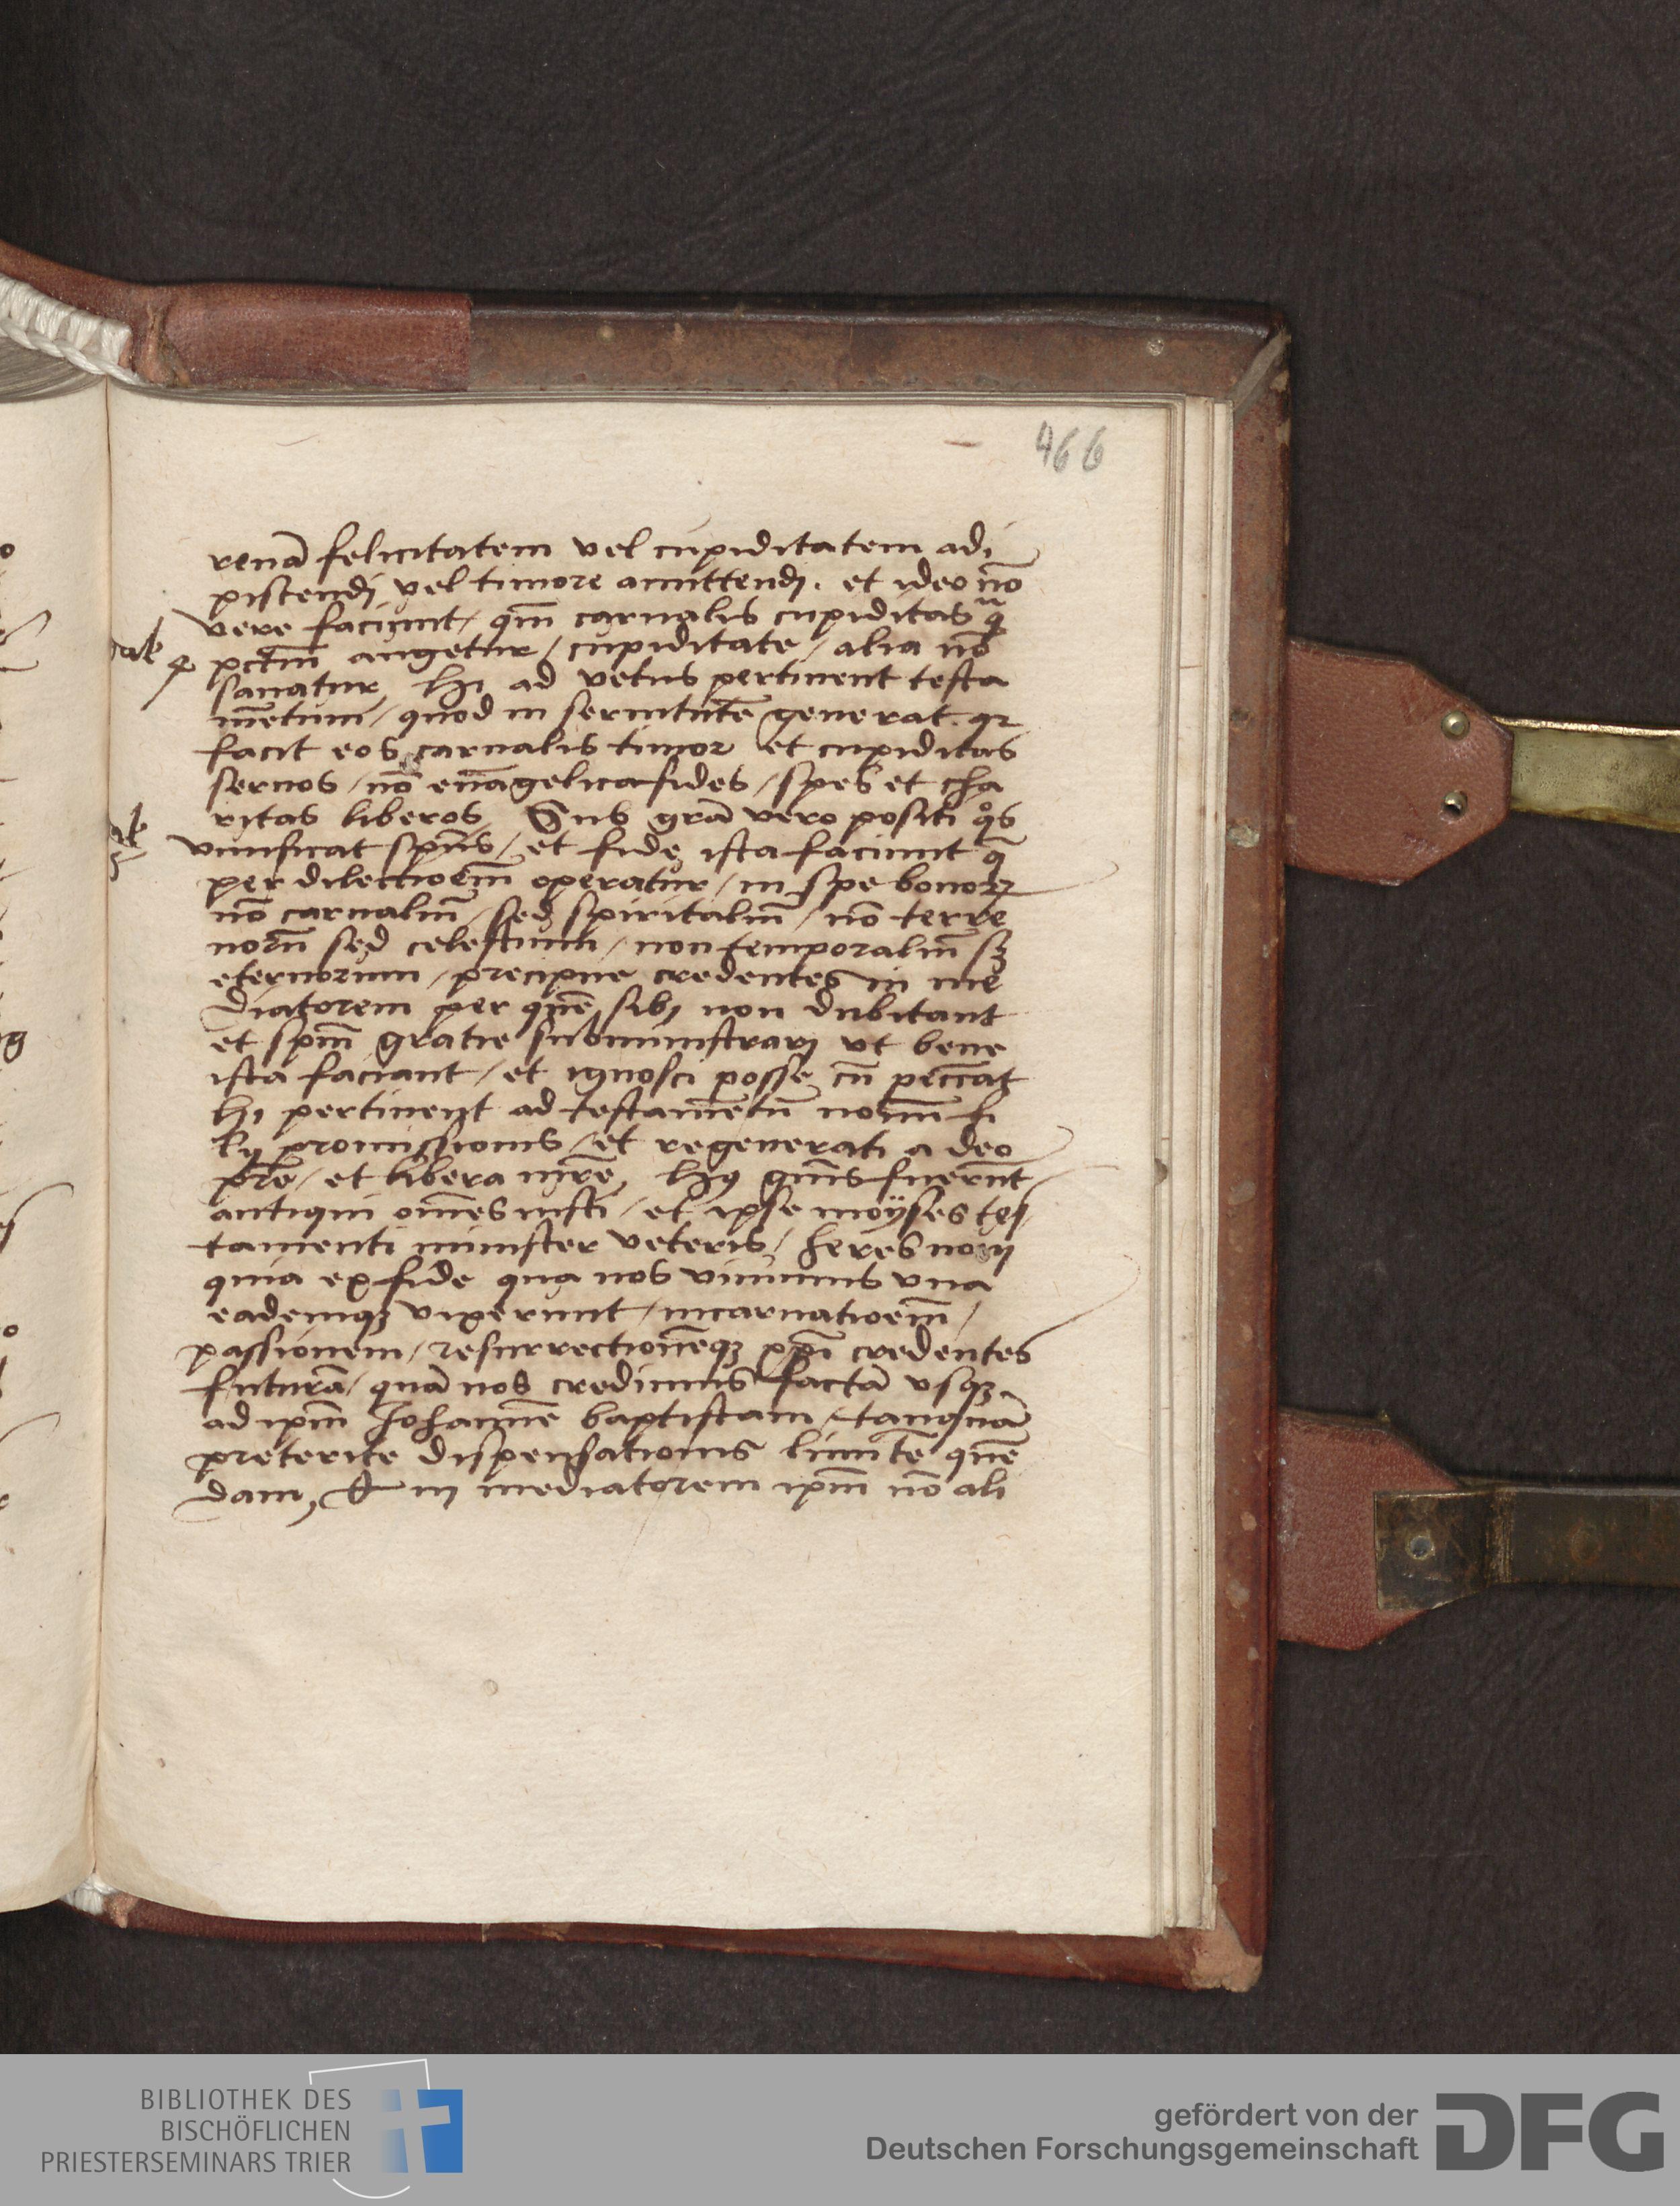 466
renā felicitatem vel cupiditatem adi
piscendi vel timore amittendi. et ideo nō
vere faciunt / qm̄ carnalis cupiditas q̄
pctm̄ augetur / cupiditate / alia nō
sanatur, Hi ad vetus pertinent testa
mētum / quod in seruitutē generat. qr
facit eos carnalis timor et cupiditas
seruos / nō euāgelica fides / spes et cha
ritas liberos, Sub grā vero positi qͦs
viuificat spūs / et fide ista faciunt q̄
per dilectioēm operatur / in spe bonoꝝ
nō carnaliū / sed spiritaliū / nō terre
norū sed celestium / non temporaliū sꝫ
eternorum / precipue credentes in me
diatorem per quē sibi non dubitant
et spm̄ gratie subministrari vt bene
ista faciant / et ignosci posse cū peccāt
Hi pertinent ad testamētū nouū fi
lij promissionis / et regenerati a deo
pr̄e / et libera mr̄e, Hꝰ gn̄is fuerūt
antiqui om̄es iusti / et ipse moÿses tes
tamenti minister veteris / heres noui
quia ex fide qua nos viuimus vna
eademqꝫ vixerunt / incarnatioēm /
passionem / resurrectionēqꝫ xp̄i credentes
futurā / quā nos credimus factā vsqꝫ
ad ipm̄ Johannē baptistam / tanquā
preterite dispensationis limitē quē
dam, Et in mediatorem ipm̄ nō ali
BIBLIOTHEK DES
BISCHÖFLICHEN
PRIESTERSEMINARS TRIER
gefördert von der
Deutschen Forschungsgemeinschaft
DFG